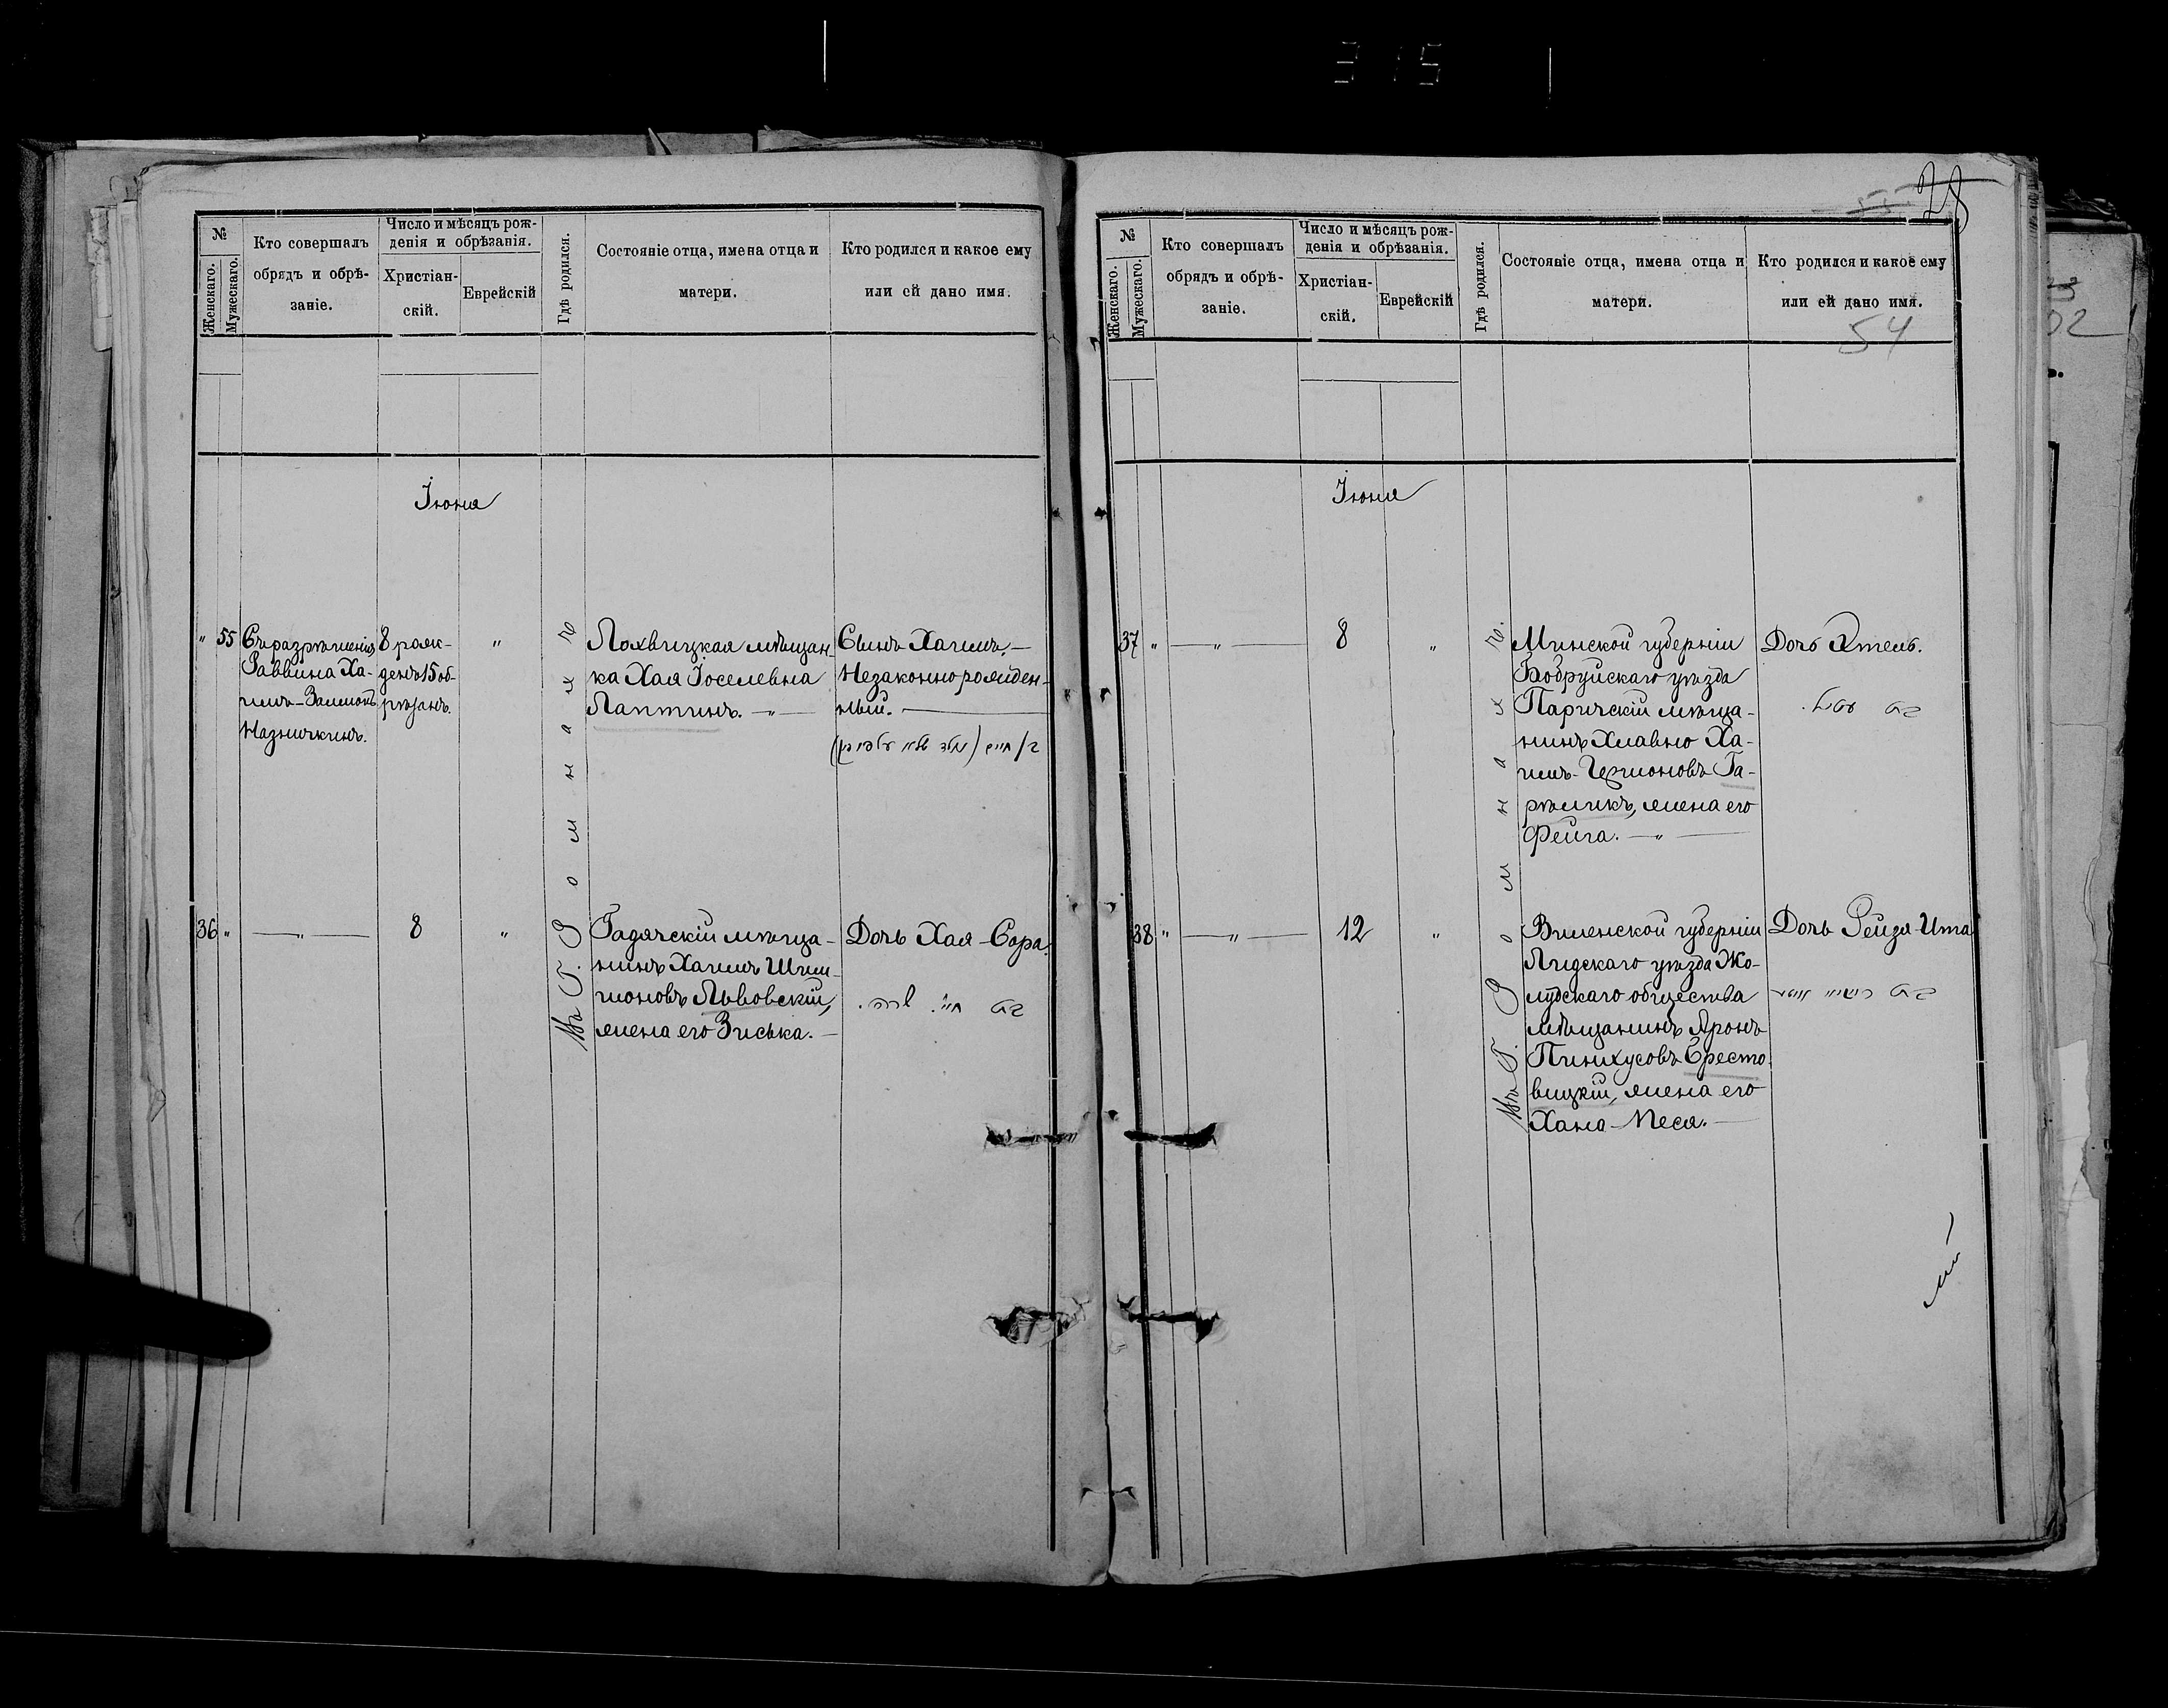 315
№
Женскаго.
Мужескаго.
Кто совершалъ
обрядъ и обрѣ-
заніе.
Число и мѣсяцъ рож-
денія и обрѣзанія.
Христіан-
скій.
Еврейскій
Гдѣ родился.
Состояніе отца, имена отца и
матери.
Кто родился и какое ему
или ей дано имя.
Іюня
" 55
Съ разрѣшенія
Раввина Ха-
имъ-Залмонъ
8 рож-
денъ 15 об-
рѣзанъ.
"
Лохвицкая мѣщан-
ка Хая Іоселевна
Лаптинъ. — " —
Сынъ Хаимъ, —
Незаконнорожден-
ный. —
36 "
— " —
8
"
Гадячскій мѣща-
нинъ Хаимъ Шли-
моновъ Львовскій,
жена его Зиська. —
Дочь Хая-Сора.
חי' שרה.
Въ Г. Роменахъ
28
54
№
Женскаго.
Мужескаго.
Кто совершалъ
обрядъ и обрѣ-
заніе.
Число и мѣсяцъ рож-
денія и обрѣзанія.
Христіан-
скій.
Еврейскій
Гдѣ родился.
Состояніе отца, имена отца и
матери.
Кто родился и какое ему
или ей дано имя.
Іюня
37 "
— " —
8
"
Минской губерніи
Бобруйскаго уѣзда
Паричскій мѣща-
нинъ Хлавно Ха-
имъ- Га-
рѣликъ, жена его
Фейга. — " —
Дочь Этель.
38 "
— " —
12
"
Виленской губерніи
Лидскаго уѣзда Жо-
лудскаго общества
мѣщанинъ Аронъ
Пинхусовъ Бресто-
вицкій, жена его
Хана-Песя. —
Дочь Рейзя-Ита
02